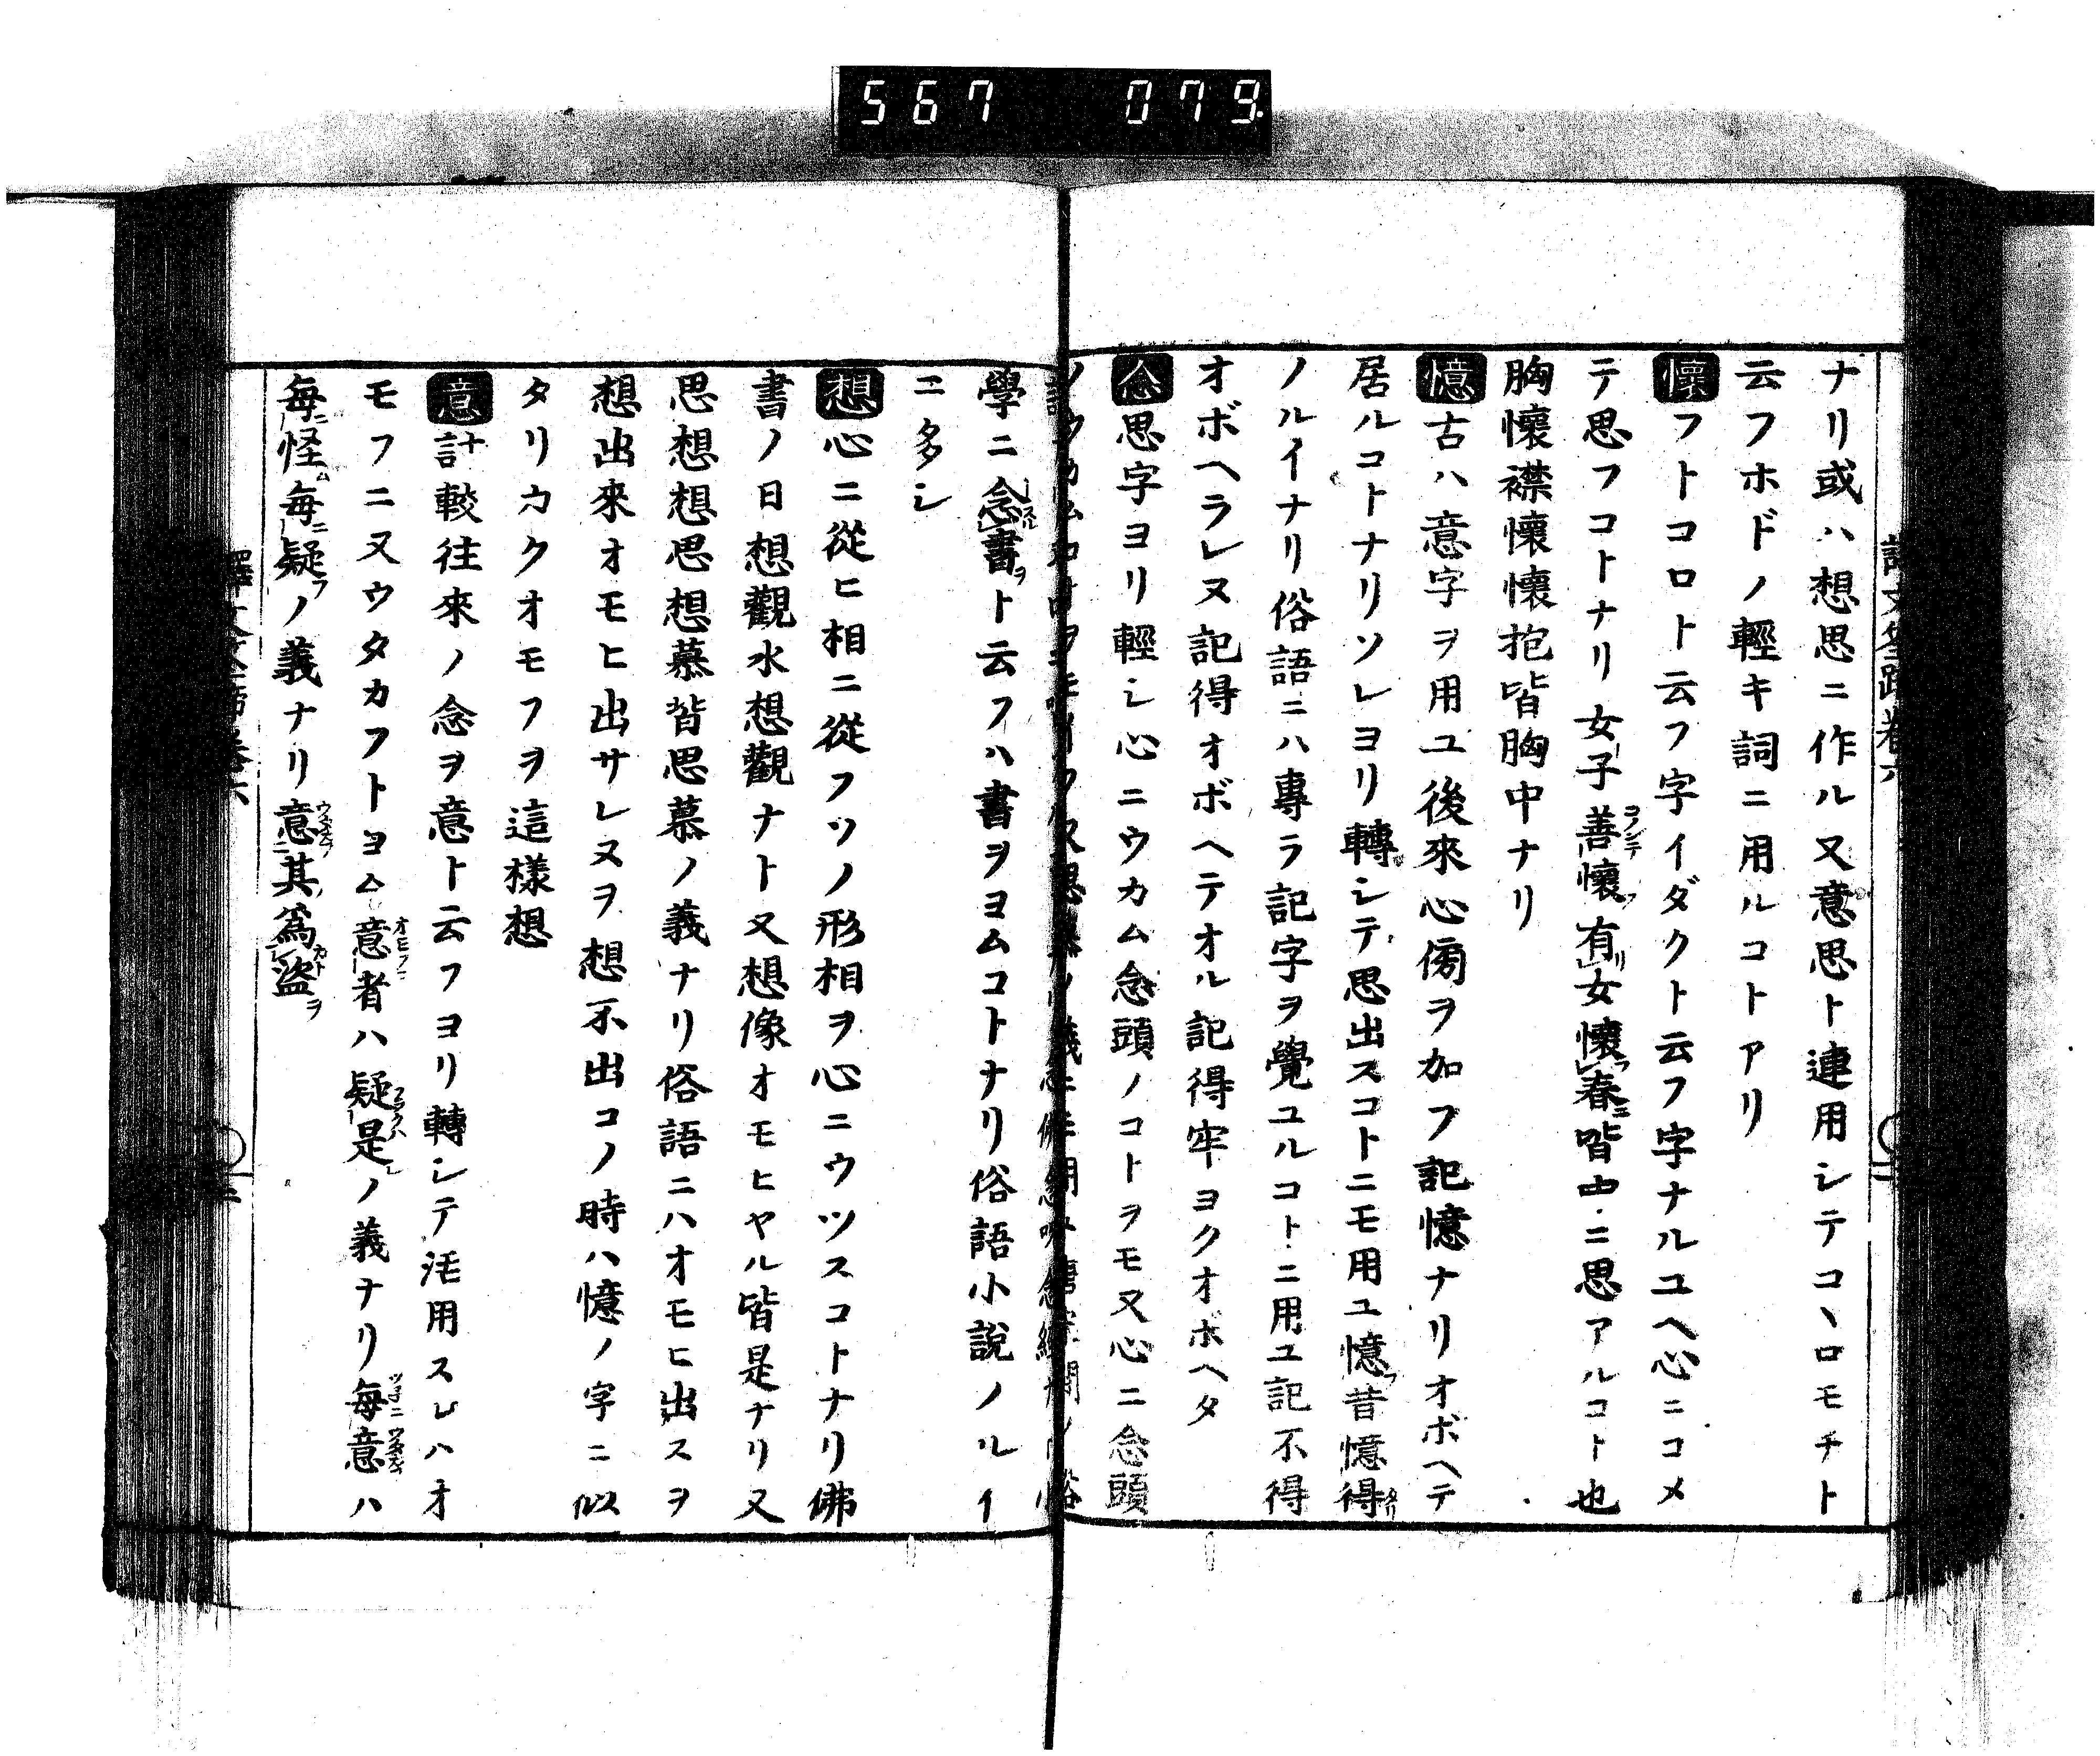 567 079
ナリ或ハ想思ニ作ル又意思ト連用シテコヽロモチト
云フホドノ輕キ詞ニ用ルコトアリ
懷フトコロト云フ字イダクト云フ字ナルユヘ心ニコメ
テ思フコトナリ女子善懷有女懷春皆中ニ思アルコト也
胸懷襟懷懷抱皆胸中ナリ
憶古ハ意字ヲ用ユ後來心傍ヲ加フ記憶ナリオボヘテ
居ルコトナリソレヨリ轉シテ思出スコトニモ用ユ憶昔憶得
ノルイナリ俗語ニハ專ラ記字ヲ覺ユルコトニ用ユ記不得
オボヘラレヌ記得オボヘテオル記得牢ヨクオボヘタ
念思字ヨリ輕シ心ニウカム念頭ノコトヲモ又心ニ念頭
學ニ念書ヲト云フハ書ヲヨムコトナリ俗語小說ノルイ
ニ多シ
想心ニ從ヒ相ニ從フツノ形相ヲ心ニウツスコトナリ佛
書ノ日想觀水想觀ナト又想像オモヒヤル皆是ナリ又
思想想思想慕皆思慕ノ義ナリ俗語ニハオモヒ出スヲ
想出來オモヒ出サレヌヲ想不出コノ時ハ憶ノ字ニ似
タリカクオモフヲ這樣想
意計較往來ノ念ヲ意ト云フヨリ轉シテ活用スレハオ
モフニ又ウタカフトヨム意者ハ疑是ノ義ナリ每意ハ
每怪每疑ノ義ナリ意其爲盜